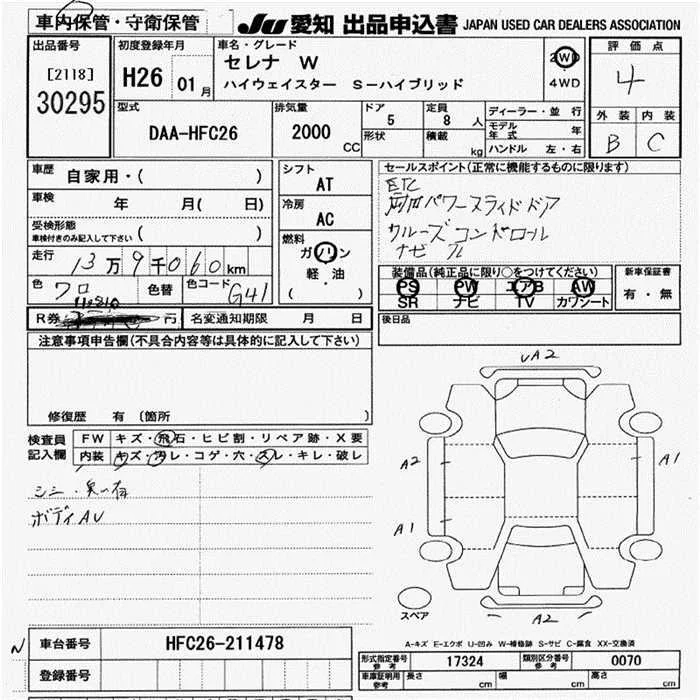 車内保管・守衛保管
JU 愛知 出品申込書 JAPAN USED CAR DEALERS ASSOCIATION
出品番号
[2118]
30295
初度登録年月
H26 01月
車名・グレード
セレナ W
ハイウェイスター S−ハイブリッド
2WD
4WD
評価点
4
外装 内装
B C
型式
DAA-HFC26
排気量
2000 CC
ドア
5
形状
定員
8 人
積載
kg
ディーラー・並行
モデル年式 年
ハンドル 左・右
車歴 自家用・( )
車検 年 月( 日)
受検形態
車検付きのみ記入して下さい ( )
走行 13万9千060km
色 クロ 色替 色コード G41
シフト
AT
冷房
AC
燃料
ガソリン
軽・油
( )
セールスポイント(正常に機能するものに限ります)
ETC
両側パワースライドドア
クルーズコントロール
ナビ TV
装備品(純正品に限り○をつけてください)
PS PW エアB AW
SR ナビ TV カワシート
新車保証書
有・無
R券 円 名変通知期限 月 日
後日品
注意事項申告欄(不具合内容等は具体的に記入して下さい)
修復歴 有 (箇所 )
検査員記入欄
FW キズ・飛石・ヒビ割・リペア跡・X要
内装 キズ・汚レ・コゲ・穴・スレ・キレ・破レ
シミ・臭い有
ボディAU
UA2
A2
A1
A1
A2
スペア
A-キズ E-エクボ U-凹み W-補修跡 S-サビ C-腐食 XX-交換済
N
車台番号 HFC26-211478
登録番号
形式指定番号 参考 17324 類別区分番号 参考 0070
車庫証明用 参考 長さ cm 幅 cm 高さ cm